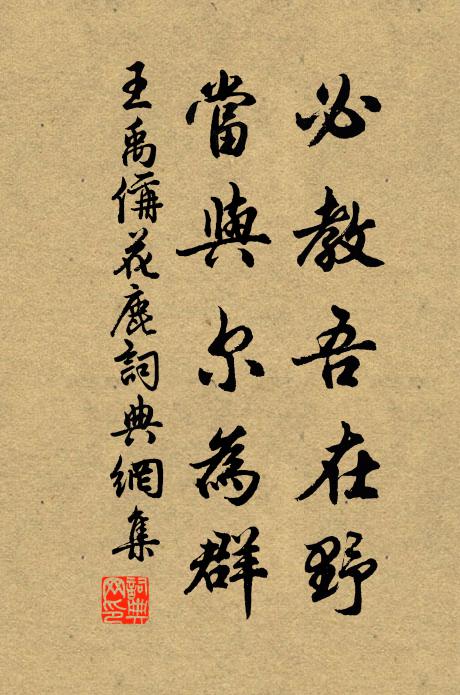 必教吾在野
當與尔為群
王禹偁花鹿詞典網集
詞典
网印